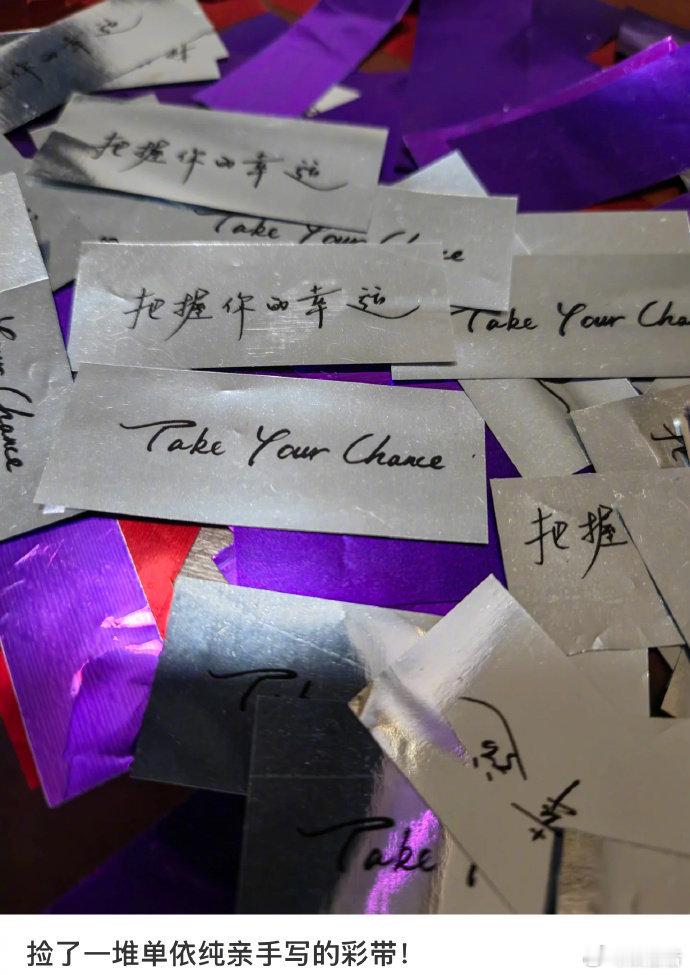 把握你的幸运
Take Your Chance
把握你的幸运
Take Your Cha
Your Chance
Take Your Chance
把握
Take
捡了一堆单依纯亲手写的彩带！